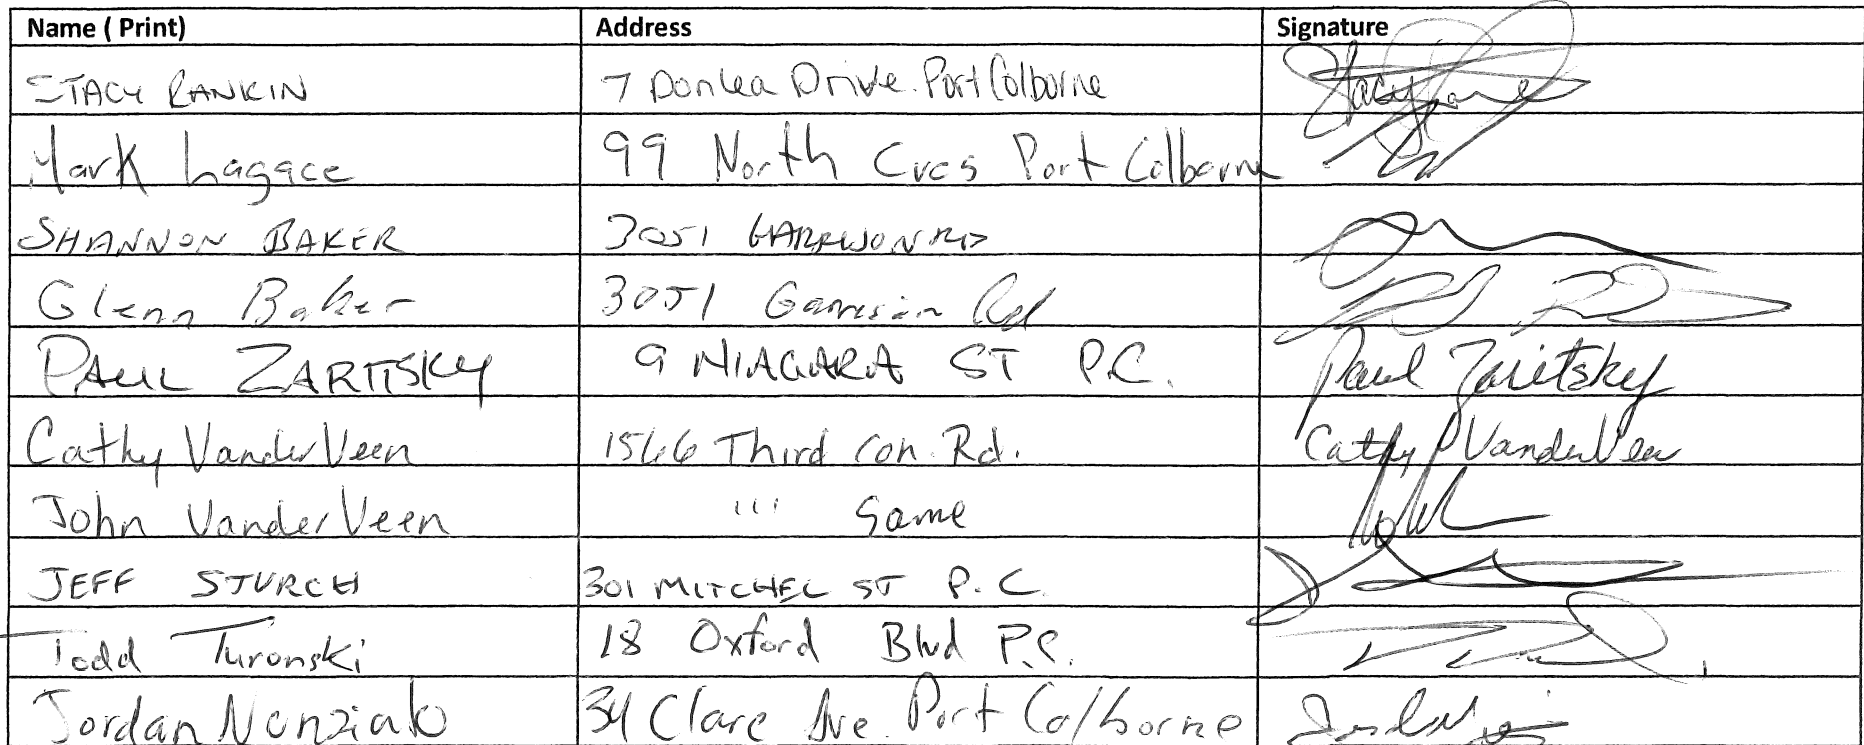 Name ( Print) Address Signature
STACY RANKIN 7 Donlea Drive. Port Colborne Stacy
Mark Lagace 99 North Cres Port Colborne
SHANNON BAKER 3051 GARRISON RD
Glenn Baker 3051 Garrison Rd
PAUL ZARITSKY 9 NIAGARA ST P.C. Paul Zaritsky
Cathy VanderVeen 1566 Third Con. Rd. Cathy VanderVeen
John VanderVeen ''' Same
JEFF STURCH 301 MITCHEL ST P.C.
Todd Turonski 18 Oxford Blvd P.C.
Jordan 34 Clare Ave. Port Colborne